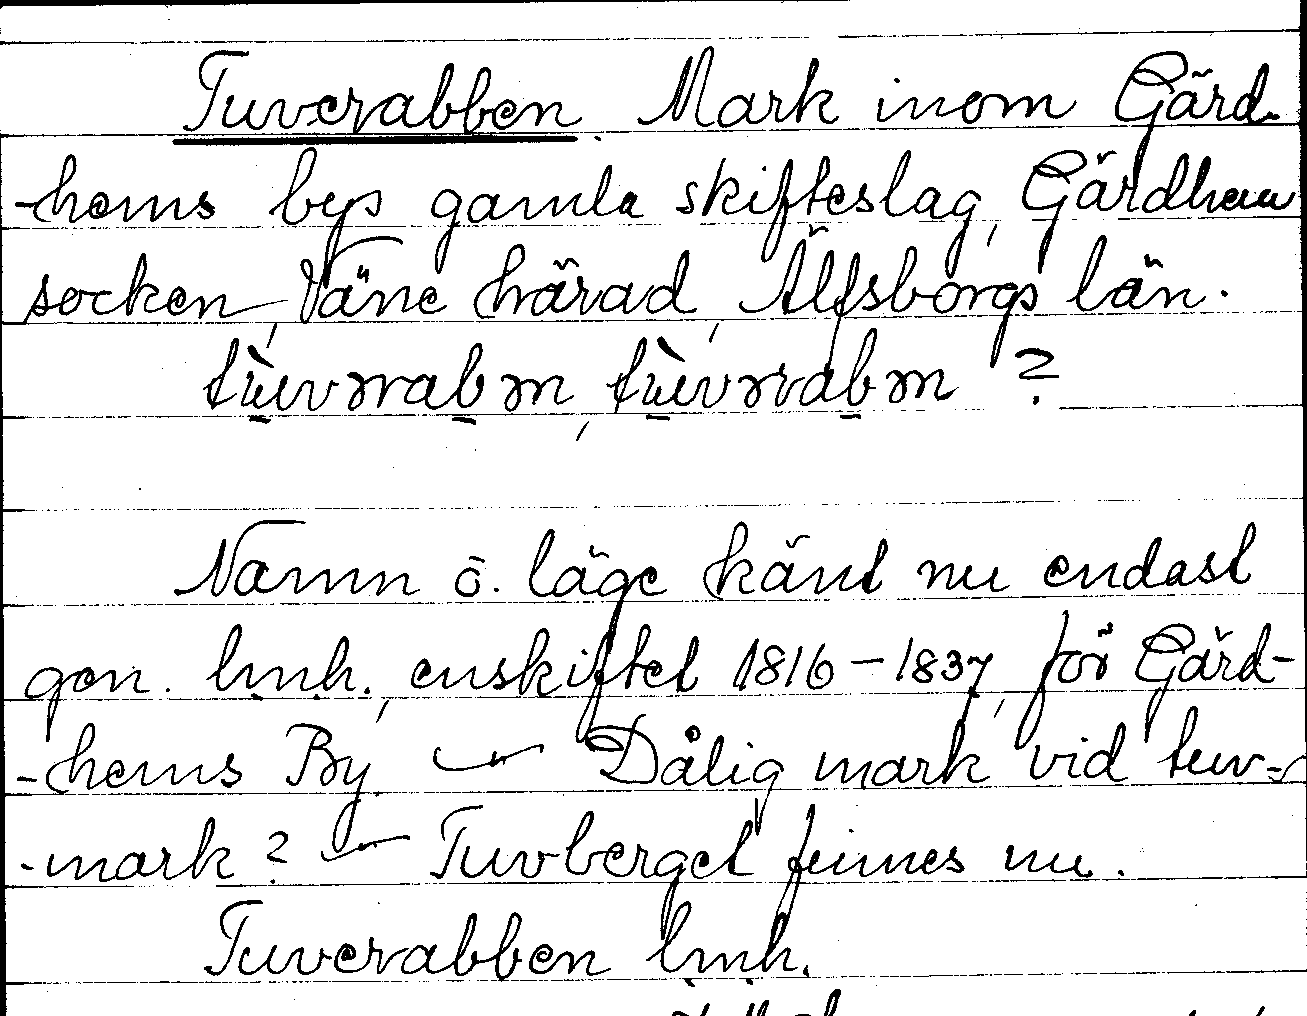 Tuverabben. Mark inom Gärd-
-hems bys gamla skifteslag, Gärdhem
socken, Väne härad, Älfsborgs län.
tùvərabən, tùvərabən ?
Namn o. läge känt nu endast
gen. lmh., enskiftet 1816-1837, för Gärd-
-hems By. — Dålig mark vid tuv-
-mark? — Tuvberget finnes nu.
Tuverabben lmh.